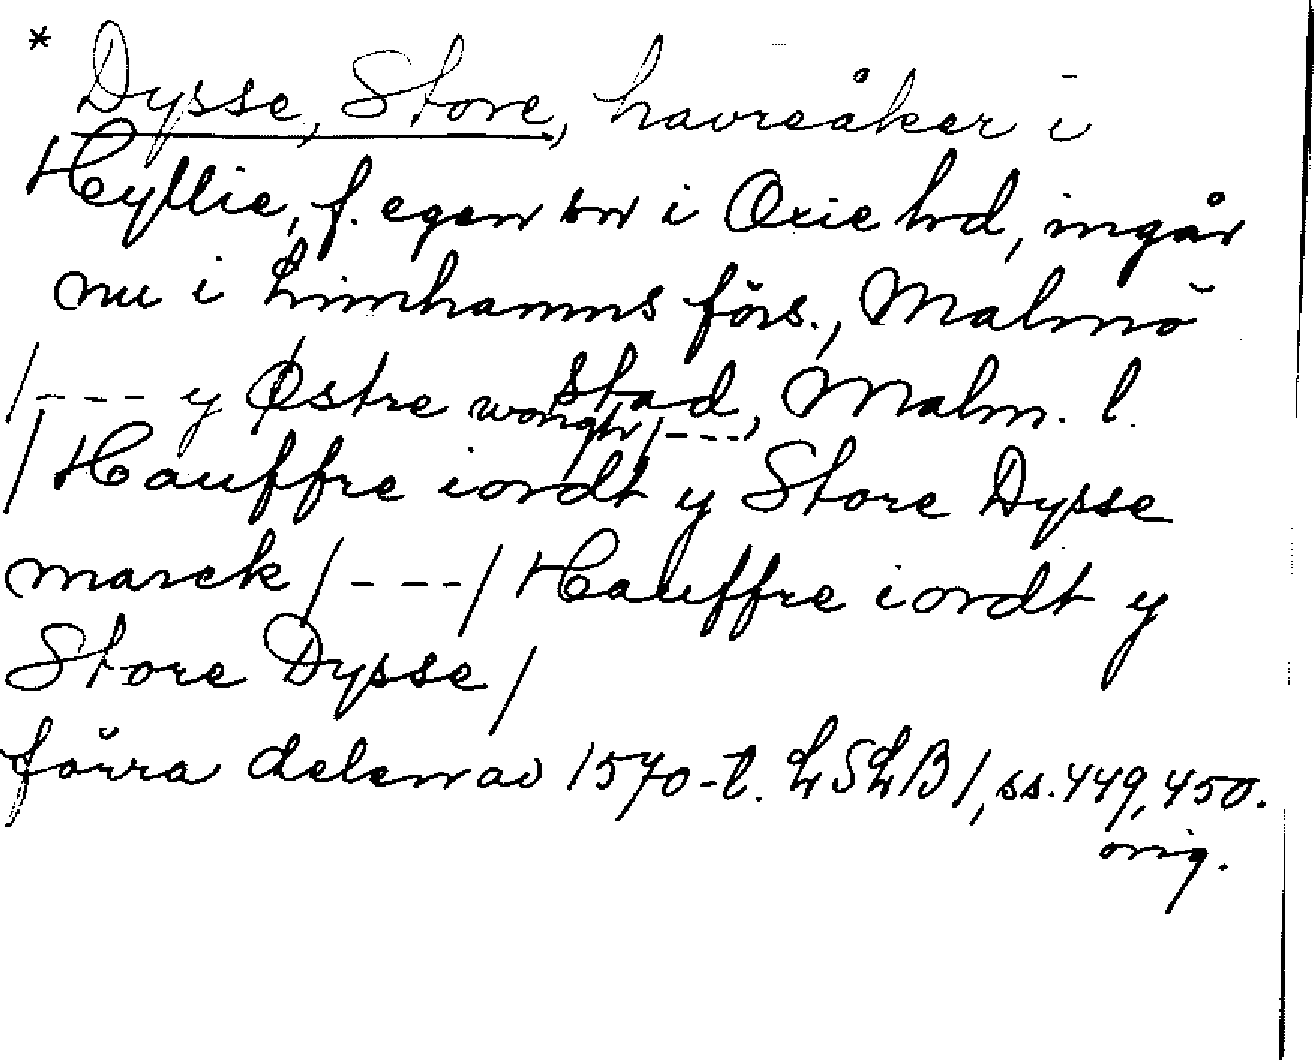 * Dysse, Store, havreåker i
Hyllie, f. egen sn i Oxie hd, ingår
nu i Limhamns förs., Malmö
stad, Malm. l.
/---- y Østre wongh /---,
/ Hauffre iordt y Store Dysse
marck / ---/ Hauffre iordt y
Store Dysse /
förra delen av 1570-t. LSLB 1, ss. 449, 450.
orig.